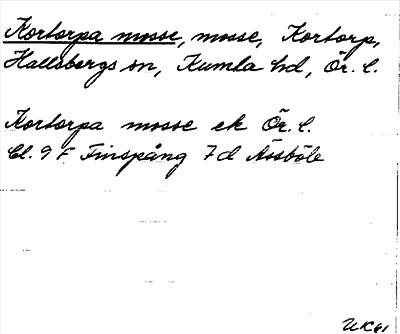 Kortorpa mosse, mosse, Kortorp,
Hallsbergs sn, Kumla hd, Ör. l.
Kortorpa mosse ek Ör. l.
Bl. 9 F Finspång 7d Åssböle
UK61